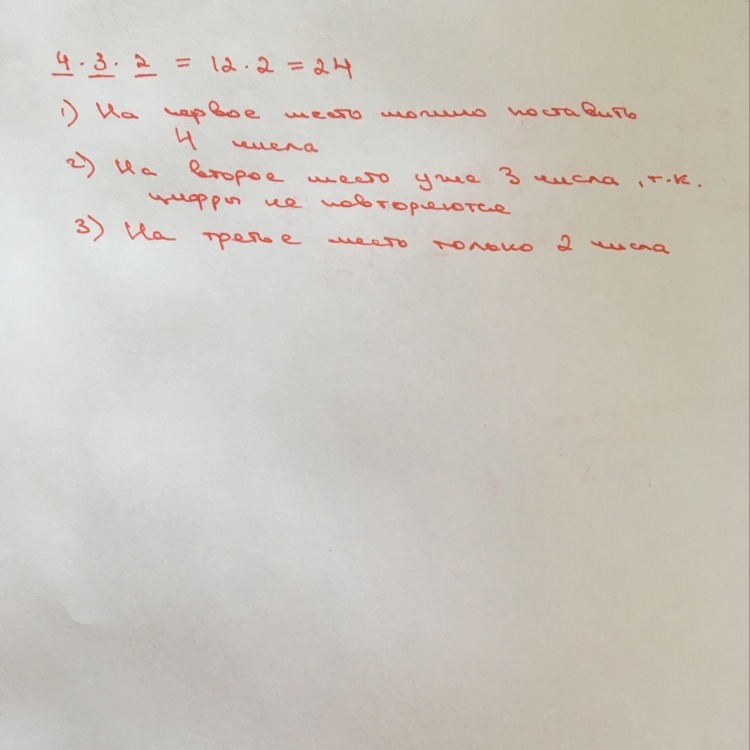 4 · 3 · 2 = 12 · 2 = 24
1) На первое место можно поставить
4 числа
2) На второе место уже 3 числа, т.к.
цифры не повторяются
3) На третье место только 2 числа